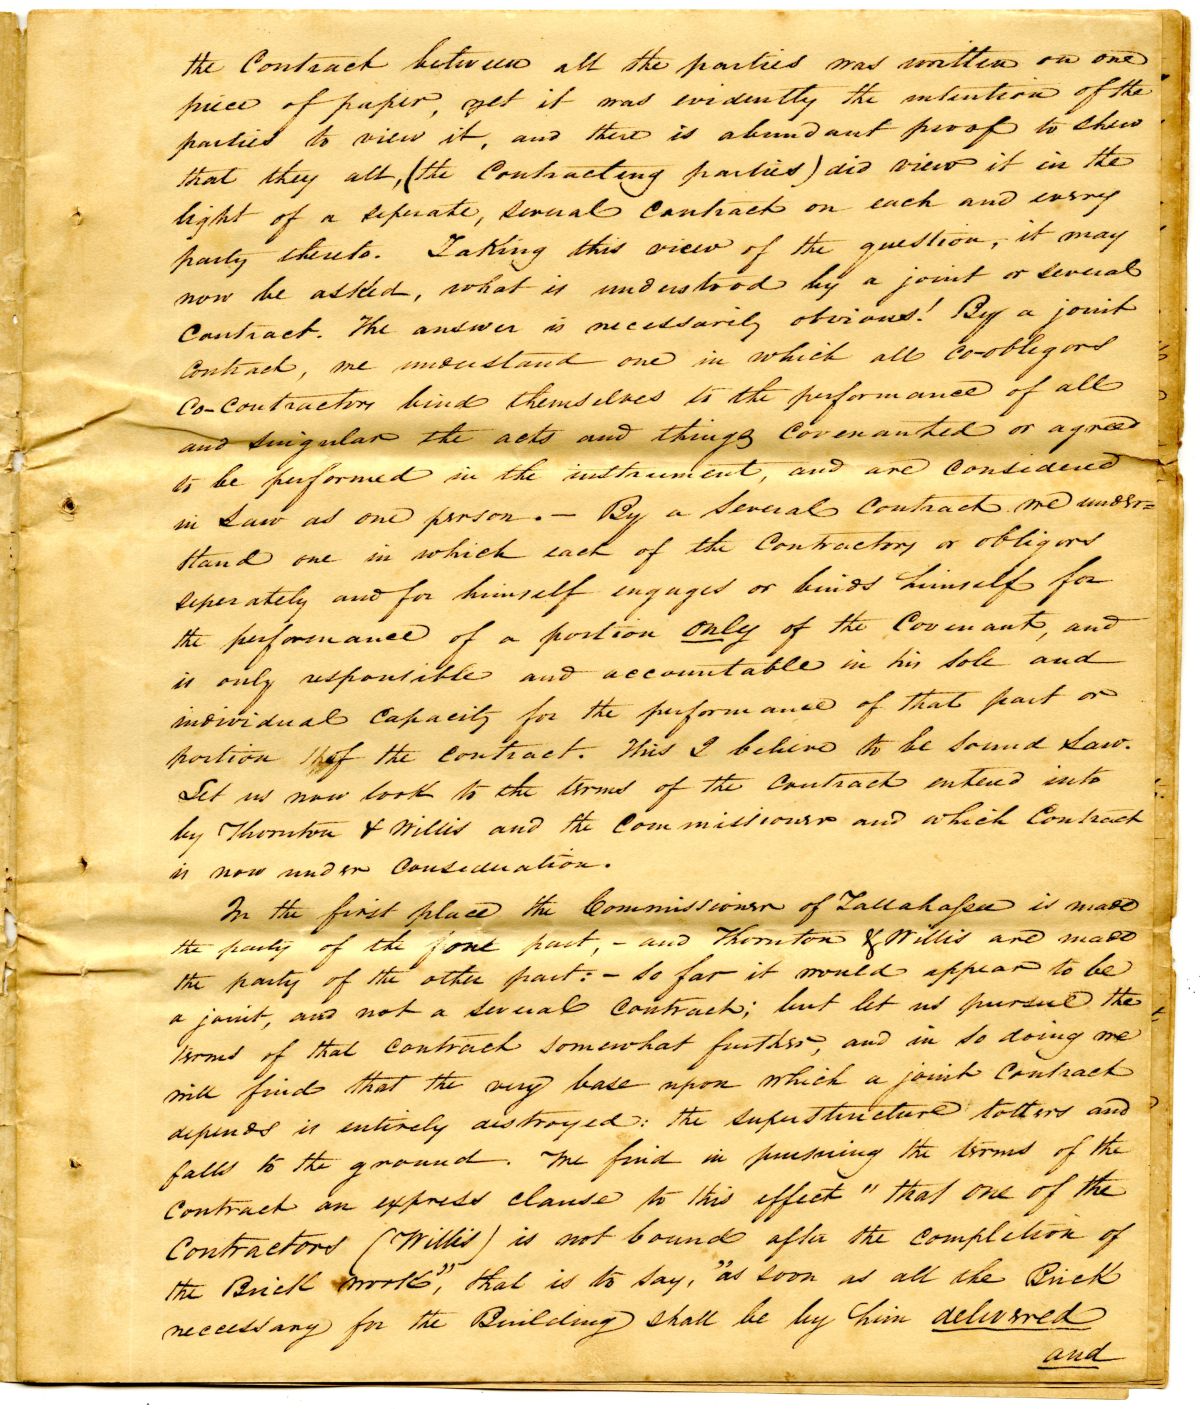 the Contract between all the parties was written on one
piece of paper, yet it was evidently the intention of the
parties to view it, and there is abundant proof to shew
that they all, (the Contracting parties) did view it in the
light of a seperate, several contract on each and every
party thereto. Taking this view of the question, it may
now be asked, what is understood by a joint or several
Contract. The answer is necessarily obvious! By a joint
contract, we understand one in which all co-obligors
co-contractors bind themselves to the performance of all
and singular the acts and things covenanted or agreed
to be performed in the instrument, and are considered
in Law as one person. — By a several contract we under=
stand one in which each of the Contractors or obligors
seperately and for himself engages or binds himself for
the performance of a portion only of the Covenant, and
is only responsible and accountable in his sole and
individual capacity for the performance of that part or
portion of the contract. This I believe to be sound Law.
Let us now look to the terms of the contract entered into
by Thornton & Willis and the Commissioner and which Contract
is now under consideration.
In the first place the Commissioner of Tallahassee is made
the party of the one part, — and Thornton & Willis are made
the party of the other part: — so far it would appear to be
a joint, and not a several contract; but let us pursue the
terms of that contract somewhat further, and in so doing we
will find that the very base upon which a joint Contract
depends is entirely destroyed: the superstructure totters and
falls to the ground. We find in pursuing the terms of the
contract an express clause to this effect "that one of the
Contractors (Willis) is not bound after the completion of
the Brick work", that is to say, "as soon as all the Brick
necessary for the Building shall be by him delivered
and